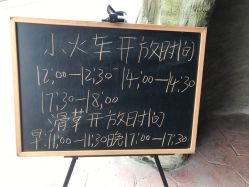 小火车开放时间
12:00—12:30 14:00—14:30
17:30—18:00
滑草开放时间
早:11:00—11:30晚17:00—17:30